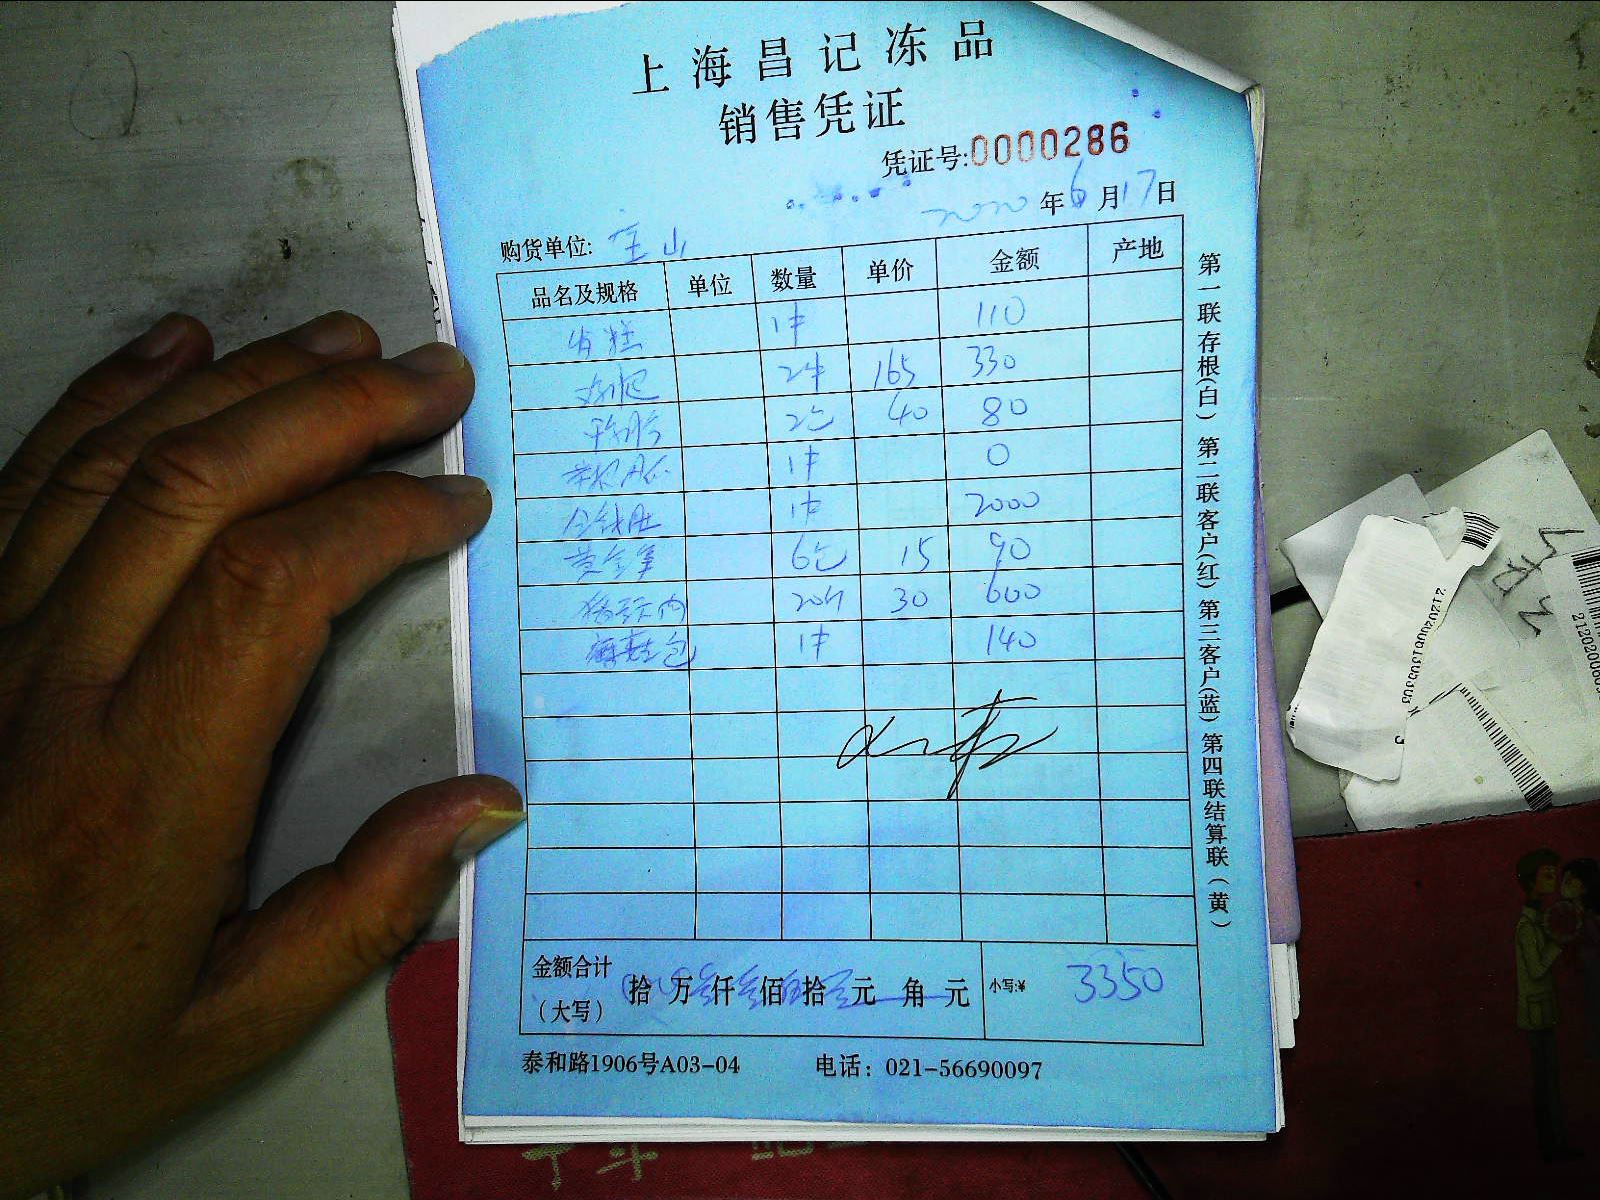 上海昌记冻品
销售凭证
凭证号:0000286
2020年6月17日
购货单位: 宝山
品名及规格 单位 数量 单价 金额 产地
发糕 1件 110
2件 165 330
2包 40 80
1件 0
金钱肚 1件 2000
黄金 6包 15 90
猪头肉 20斤 30 600
包 1件 140
金额合计
(大写) 拾 万叁仟叁佰伍拾元 角 元 小写:¥ 3350
泰和路1906号A03-04 电话: 021-56690097
第一联存根(白) 第二联客户(红) 第三客户(蓝) 第四联结算联(黄)